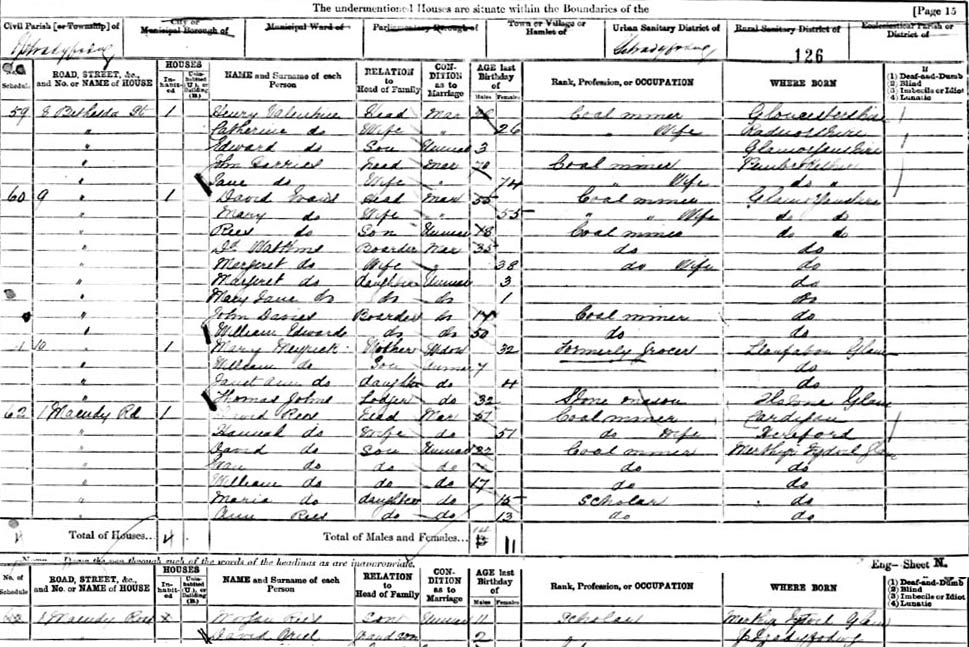 The undermentioned Houses are situate within the Boundaries of the [Page 15
Civil Parish [or Township] of City or Municipal Borough of Municipal Ward of Parliamentary Borough of Town or Village or Hamlet of Urban Sanitary District of Rural Sanitary District of Ecclesiastical Parish or District of
Ystradyfodwg Ystradyfodwg 126
No. of Schedule ROAD, STREET, &c., and No. or NAME of HOUSE HOUSES Inhabited Uninhabited (U.), or Building (B.) NAME and Surname of each Person RELATION to Head of Family CONDITION as to Marriage AGE last Birthday of Males Females Rank, Profession, or OCCUPATION WHERE BORN If (1) Deaf-and-Dumb (2) Blind (3) Imbecile or Idiot (4) Lunatic
59 8 Bethesda St 1 Henry Valentine Head Mar Coal miner Gloucestershire
" Catherine do Wife " 26 " Wife Radnorshire
" Edward do Son Unmar 3 Glamorganshire
" John Head Mar 70 Coal miner Pembrokeshire
" Jane do Wife " 74 " Wife do "
60 9 " 1 David Evans Head Mar 55 Coal miner Glamorganshire
" Mary do Wife " 55 " " Wife do do
" Rees do Son Unmar 18 Coal miner do do
" Watkins Boarder Mar 35 do do
" Margaret do Wife " 38 do Wife do
" Margaret do daughter Unmar 3 do
" Mary Jane do do do 1 do
" John Davies Boarder do 14 Coal miner do
" William Edwards do do 50 do do
10 " 1 Mary Meyrick Mother Widow 32 Formerly Grocer Llanfabon Glam
" William do Son Unmar 7 do
" Janet Ann do daughter do 4 do
" Thomas Johns Lodger do 32 Stone mason Glam
62 1 Maendy Rd 1 David Rees Head Mar 51 Coal miner
" Hannah do Wife do 51 do Wife Hereford
" David do Son Unmar 22 Coal miner Merthyr Tydvil Glam
" do do do do do
" William do do do 17 do do
" Maria do daughter do 15 Scholar do
" Ann Rees do do 13 do do
4 Total of Houses... 4 Total of Males and Females... 14 11
Note.—Draw the pen through such of the words of the headings as are inappropriate. Eng—Sheet N.
No. of Schedule ROAD, STREET, &c., and No. or NAME of HOUSE HOUSES Inhabited Uninhabited (U.), or Building (B.) NAME and Surname of each Person RELATION to Head of Family CONDITION as to Marriage AGE last Birthday of Males Females Rank, Profession, or OCCUPATION WHERE BORN (1) Deaf-and-Dumb (2) Blind (3) Imbecile or Idiot (4) Lunatic
1 Maendy Road Morgan Rees Son Unmar 11 Scholar Merthyr Tydvil Glam
" David Grandson 2 Ystradyfodwg